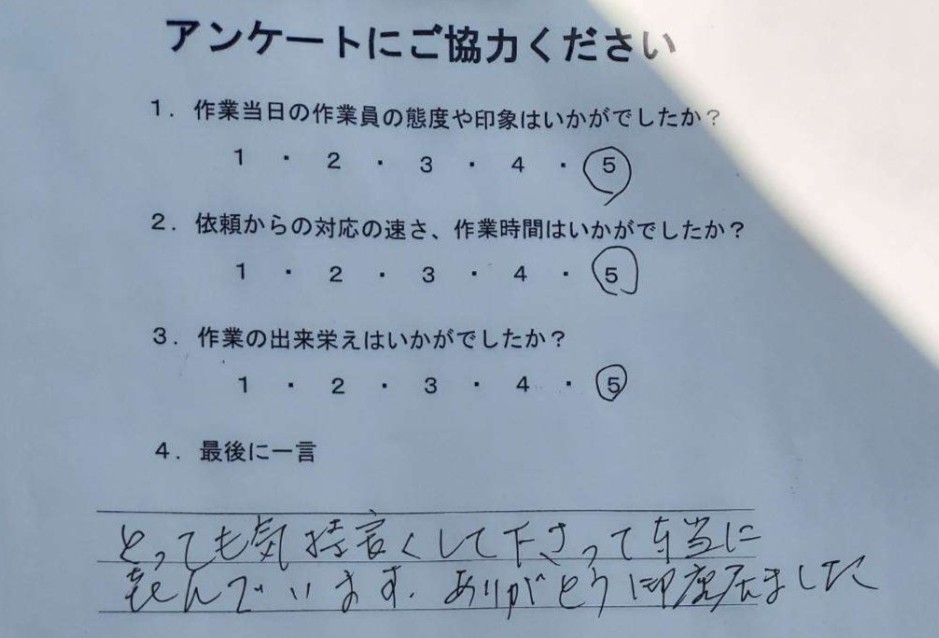 アンケートにご協力ください
1. 作業当日の作業員の態度や印象はいかがでしたか?
1 ・ 2 ・ 3 ・ 4 ・ 5
2. 依頼からの対応の速さ、作業時間はいかがでしたか?
1 ・ 2 ・ 3 ・ 4 ・ 5
3. 作業の出来栄えはいかがでしたか?
1 ・ 2 ・ 3 ・ 4 ・ 5
4. 最後に一言
とっても気持言くして下さって本当に
喜んでいます.ありがとう御座居ました